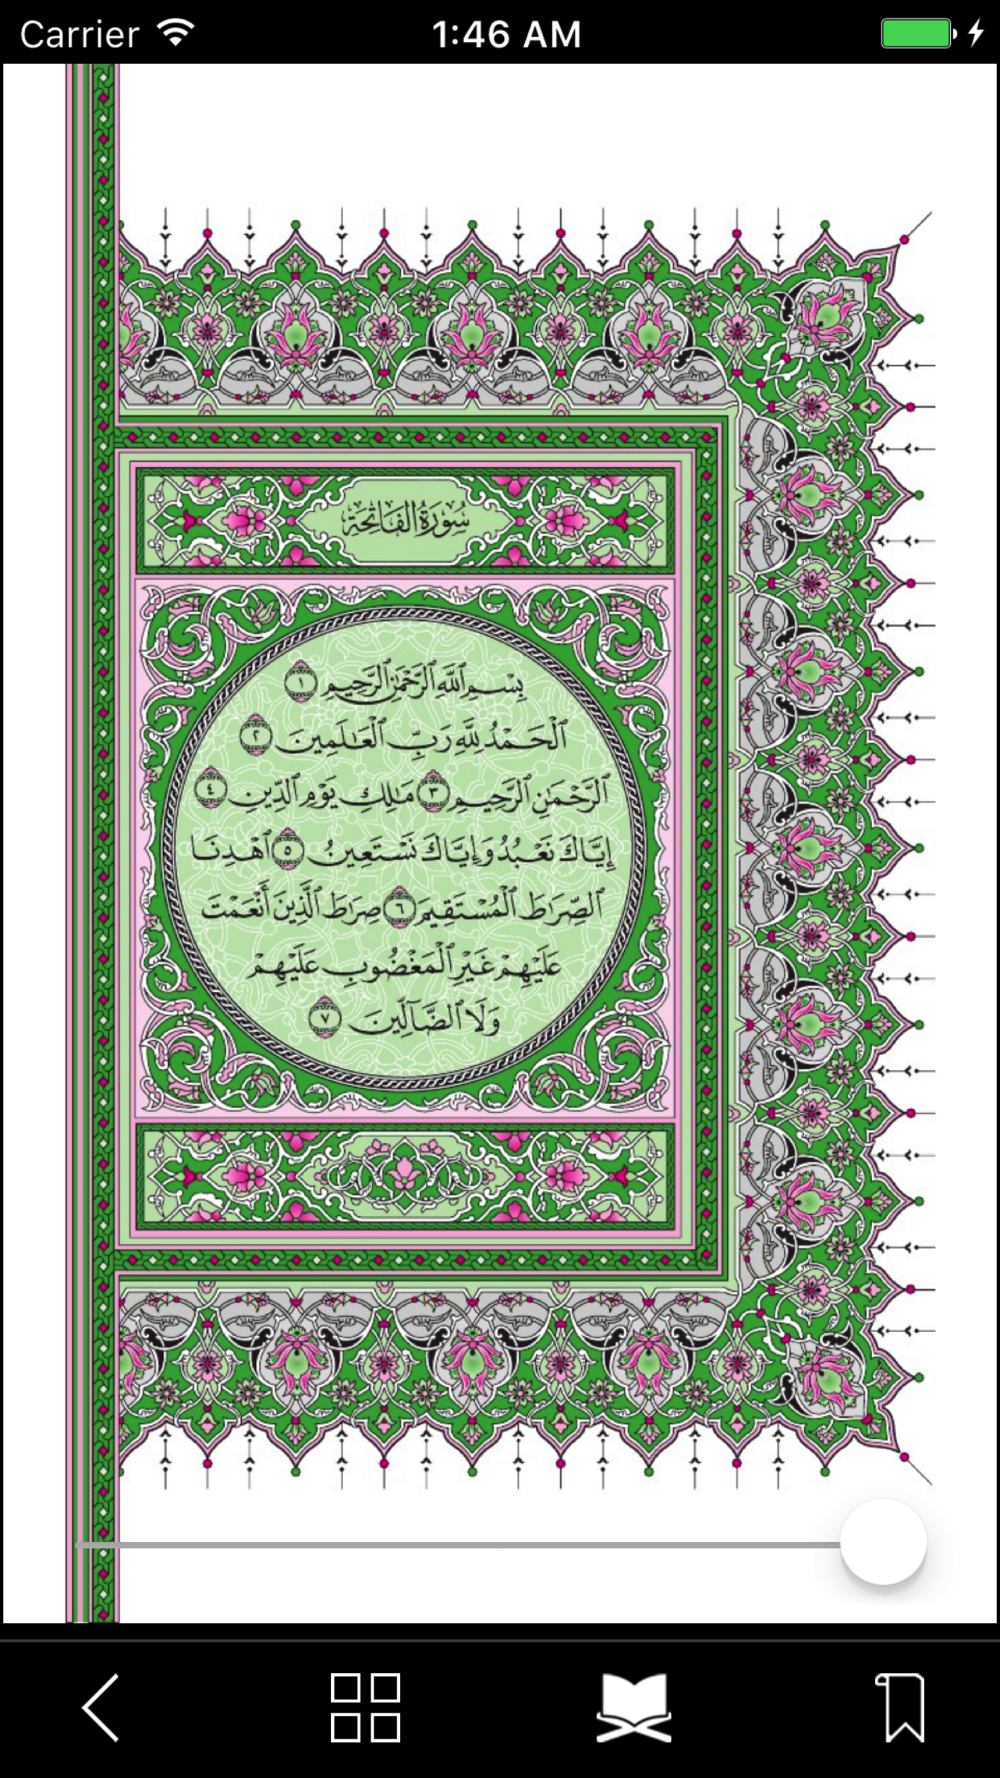 Carrier 1:46 AM
سُورَةُ الْفَاتِحَةِ
بِسْمِ ٱللَّهِ ٱلرَّحْمَٰنِ ٱلرَّحِيمِ ١
ٱلْحَمْدُ لِلَّهِ رَبِّ ٱلْعَٰلَمِينَ ٢
ٱلرَّحْمَٰنِ ٱلرَّحِيمِ ٣ مَٰلِكِ يَوْمِ ٱلدِّينِ ٤
إِيَّاكَ نَعْبُدُ وَإِيَّاكَ نَسْتَعِينُ ٥ ٱهْدِنَا
ٱلصِّرَٰطَ ٱلْمُسْتَقِيمَ ٦ صِرَٰطَ ٱلَّذِينَ أَنْعَمْتَ
عَلَيْهِمْ غَيْرِ ٱلْمَغْضُوبِ عَلَيْهِمْ
وَلَا ٱلضَّآلِّينَ ٧